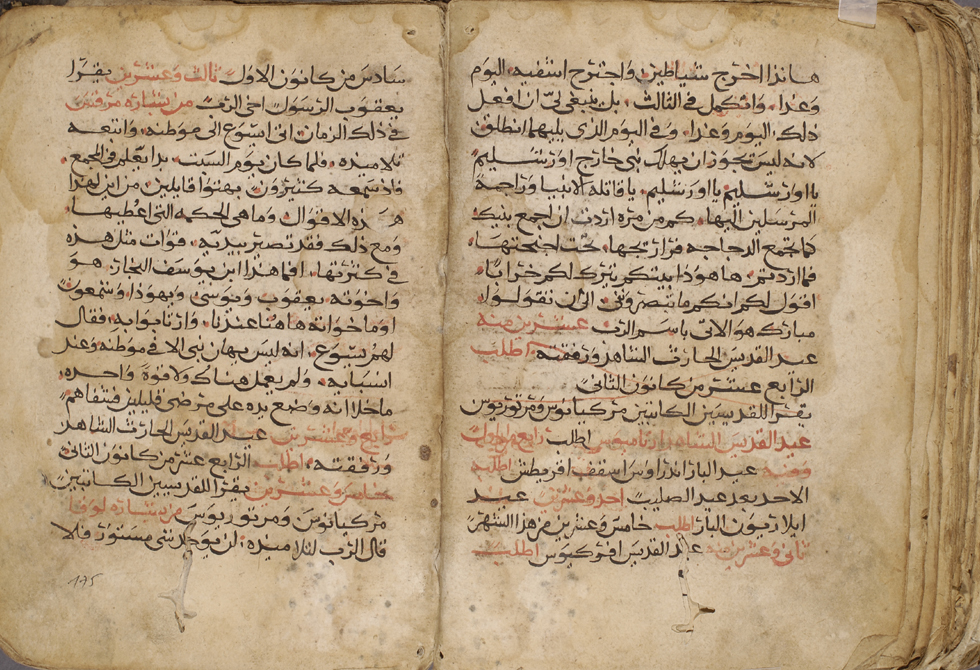 هانذا اخرج شياطين واجترح اشفيه اليوم
وغدا، واكمل في الثالث. بل ينبغي لي ان افعل
ذلك اليوم وغدا، وفي اليوم الذي يليهما انطلق
لانه ليس تجوز ان يهلك نبي خارج اورشليم
يا اورشليم يا اورشليم، يا قاتلة الانبيا وراجمة
المرسلين اليها، كم من مره اردت ان اجمع بنيك
كما تجمع الدجاجه فراريجها، تحت اجنحتها،
فما اردتم، ها هوذا بيتكم يترك لكم خرابا،
اقول لكم انكم ما تبصروني، الى ان تقولوا،
مبارك هو الاتي باسم الرب عشرين منه
عيد القديس الحارث الشاهد ورفقته اطلب
الرابع عشر من كانون الثاني
يقرا للقديسين الكاينين مركيانوس ومرتوريوس
عيد القديس الشاهد ارتاميوس اطلب رابع من ايلول
وفيه عيد البار اندراوس اسقف اقريطش اطلبه
الاحد بعد عيد الصليب احد وعشرين عيد
ايلاريون البار اطلب خامس وعشرين من هذا الشهر
ثاني وعشرين منه عيد القديس افركيوس اطلب
سادس من كانون الاول ثالث وعشرين يقرا
يعقوب الرسول اخي الرب من بشارة مرقس
في ذلك الزمان اتى ايسوع الى موطنه، واتبعه
تلاميذه، فلما كان يوم السبت، بدا يعلم في المجمع
واذ سمعه كثيرون بهتوا قايلين من اين لهذا
هذه الاقوال وما هي الحكمه التي اعطيها،
ومع ذلك فقد تصير بيديه، قوات مثل هذه
في كثرتها، افما هذا ابن يوسف النجار، هو
واخوته يعقوب ويوسي ويهوذا وشمعون
اوما خواته هاهنا عندنا، وارتابوا به، فقال
لهم يسوع، انه ليس يهان نبي الا في موطنه وعند
انسبايه، ولم يعمل هناك ولا قوة واحده،
ما خلا انه وضع يده على مرضى قليلين فشفاهم
رابع وعشرين منه عيد القديس الحارث الشاهد
ورفقته، اطلب الرابع عشر من كانون الثاني
خامس وعشرين يقرا للقديسين الكاينين
مركيانوس ومرتوريوس من بشارة لوقا
قال الرب لتلاميذه، لن يوجد شي مستور فالا
175